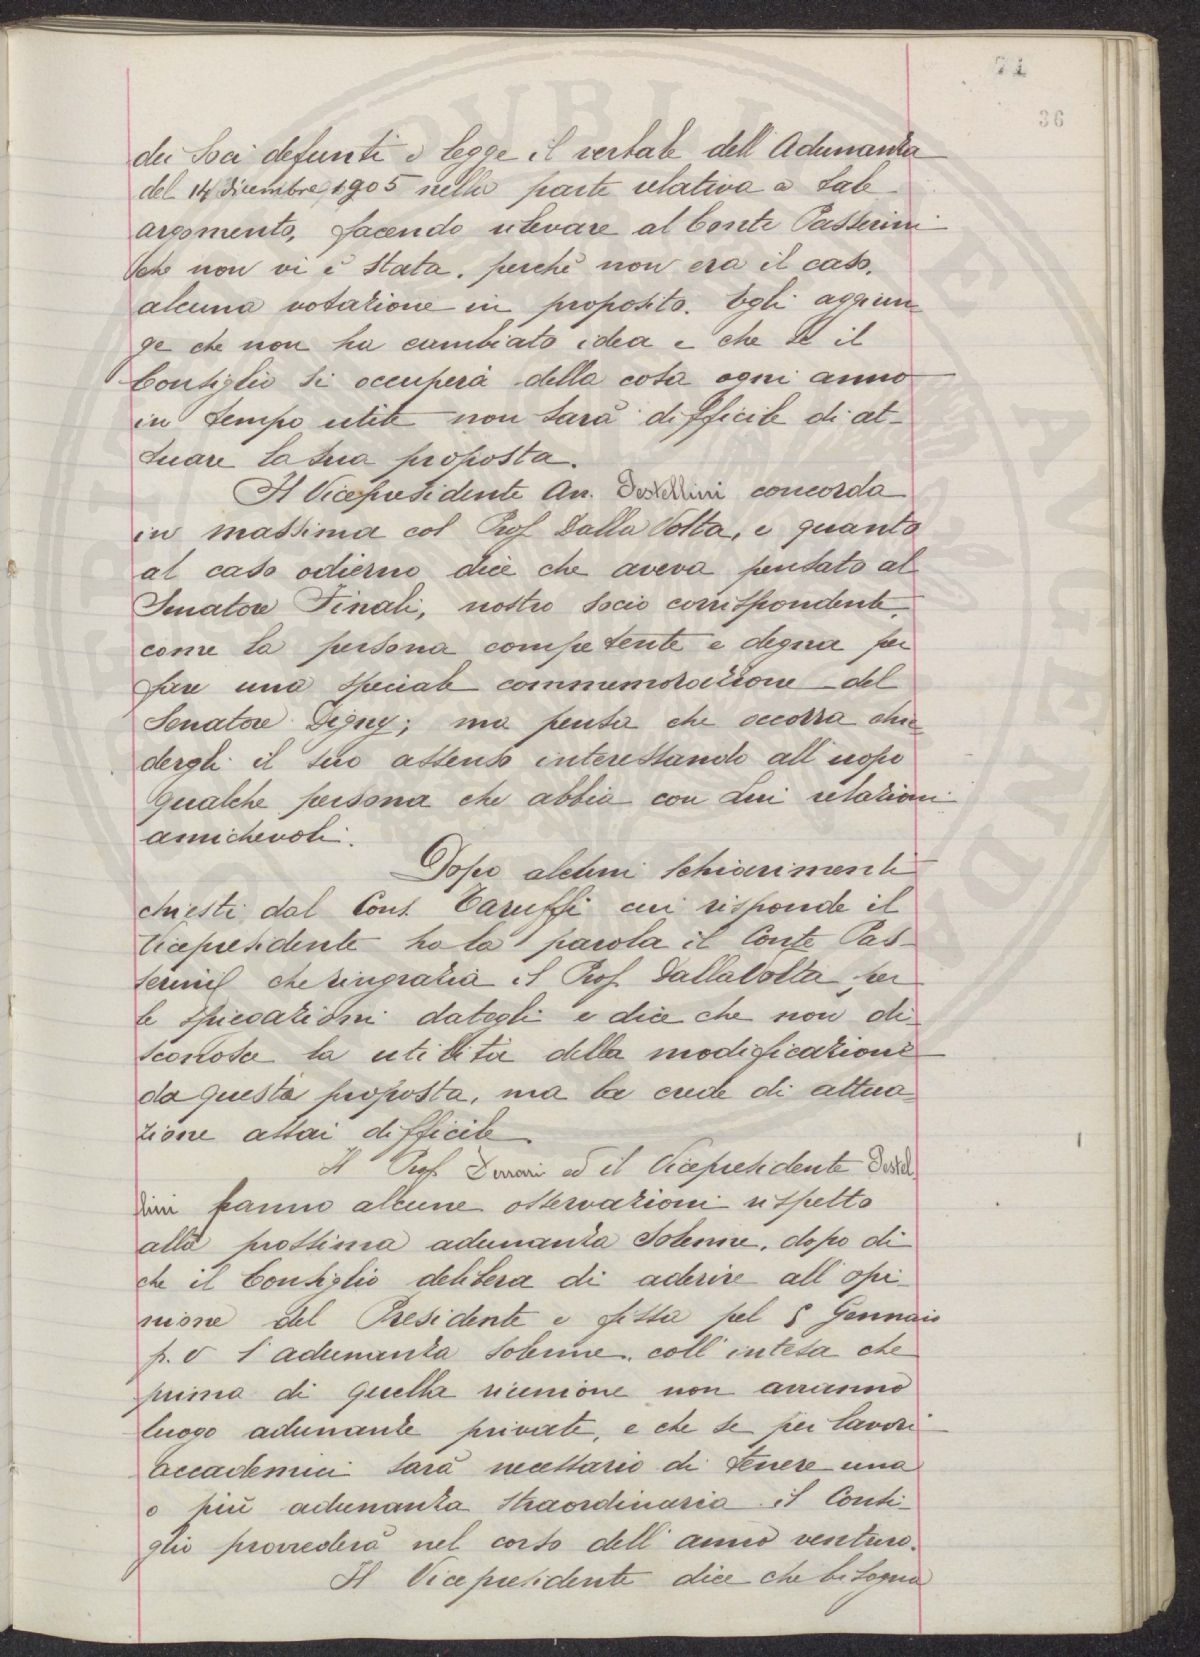 71
36
dei Soci defunti e legge il verbale dell'Adunanza
del 14 dicembre 1905 nella parte relativa a tale
argomento, facendo rilevare al Conte Passerini
che non vi è stata, perchè non era il caso,
alcuna votazione in proposito. Egli aggiun
ge che non ha cambiato idea e che se il
Consiglio si occuperà della cosa ogni anno
in tempo utile non sarà difficile di at-
tuare la sua proposta.
Il Vicepresidente Av. Pestellini concorda
in massima col Prof. Dalla Volta, e quanto
al caso odierno dice che aveva pensato al
Senatore Finali, nostro socio corrispondente,
come la persona competente e degna per
fare una speciale commemorazione del
Senatore Digny; ma pensa che occorra chie
dergli il suo assenso interessando all'uopo
qualche persona che abbia con Lui relazioni
amichevoli.
Dopo alcuni schiarimenti
chiesti dal Cons. Taruffi cui risponde il
Vicepresidente ha la parola il Conte Pas-
serini che ringrazia il Prof. Dalla Volta per
le spiegazioni dategli e dice che non di-
sconosce la utilità della modificazione
da questi proposta, ma la crede di attua-
zione assai difficile.
Il Prof. Ferrari ed il Vicepresidente Pestel
lini fanno alcune osservazioni rispetto
alla prossima adunanza solenne, dopo di
che il Consiglio delibera di aderire all'opi-
nione del Presidente e fissa pel 5 Gennaio
p.v l'adunanza solenne, coll'intesa che
prima di quella riunione non avranno
luogo adunanze private, e che se per lavori
accademici sarà necessario di tenere una
o più adunanza straordinaria il Consi-
glio provvederà nel corso dell'anno venturo.
Il Vicepresidente dice che bisogna